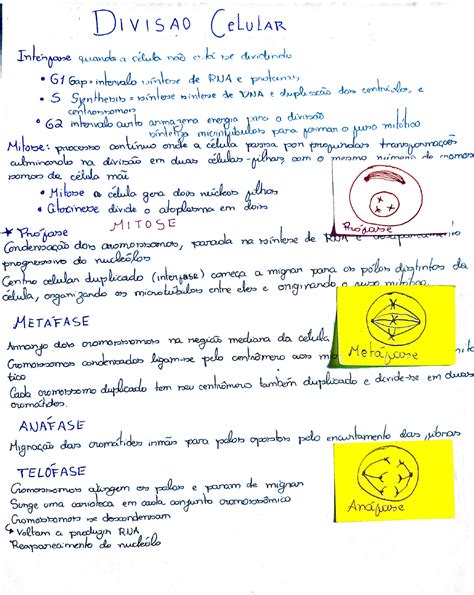 DIVISÃO CELULAR
Interfase quando a célula não está se dividindo
• G1 Gap = intervalo síntese de RNA e proteínas
• S Synthesis = síntese síntese de DNA e duplicação dos centríolos e
centrossomos
• G2 intervalo curto armazena energia para a divisão
sintetiza microtúbulos para formar o fuso mitótico
Mitose: processo contínuo onde a célula passa por profundas transformações
culminando na divisão em duas células-filhas com o mesmo número de
somos da célula mãe
• Mitose a célula gera dois núcleos filhos
• Citocinese divide o citoplasma em dois
MITOSE
* Prófase
Condensação dos cromossomos, parada na síntese de RNA e desaparecimento
progressivo do nucléolo
Prófase
Centro celular duplicado (interfase) começa a migrar para os pólos distintos da
célula, organizando os microtúbulos entre eles e originando o fuso mitótico
METÁFASE
Arranjo dos cromossomos na região mediana da célula
Cromossomos condensados ligam-se pelo centrômero aos
tico
Metáfase
Cada cromossomo duplicado tem seu centrômero também duplicado e divide-se em duas
cromátides.
ANÁFASE
Migração das cromátides irmãs para polos opostos pelo encurtamento das fibras
TELÓFASE
Cromossomos atingem os polos e param de migrar
Surge uma carioteca em cada conjunto cromossômico
Cromossomos se descondensam
Voltam a produzir RNA
Reaparecimento do nucléolo
Anáfase